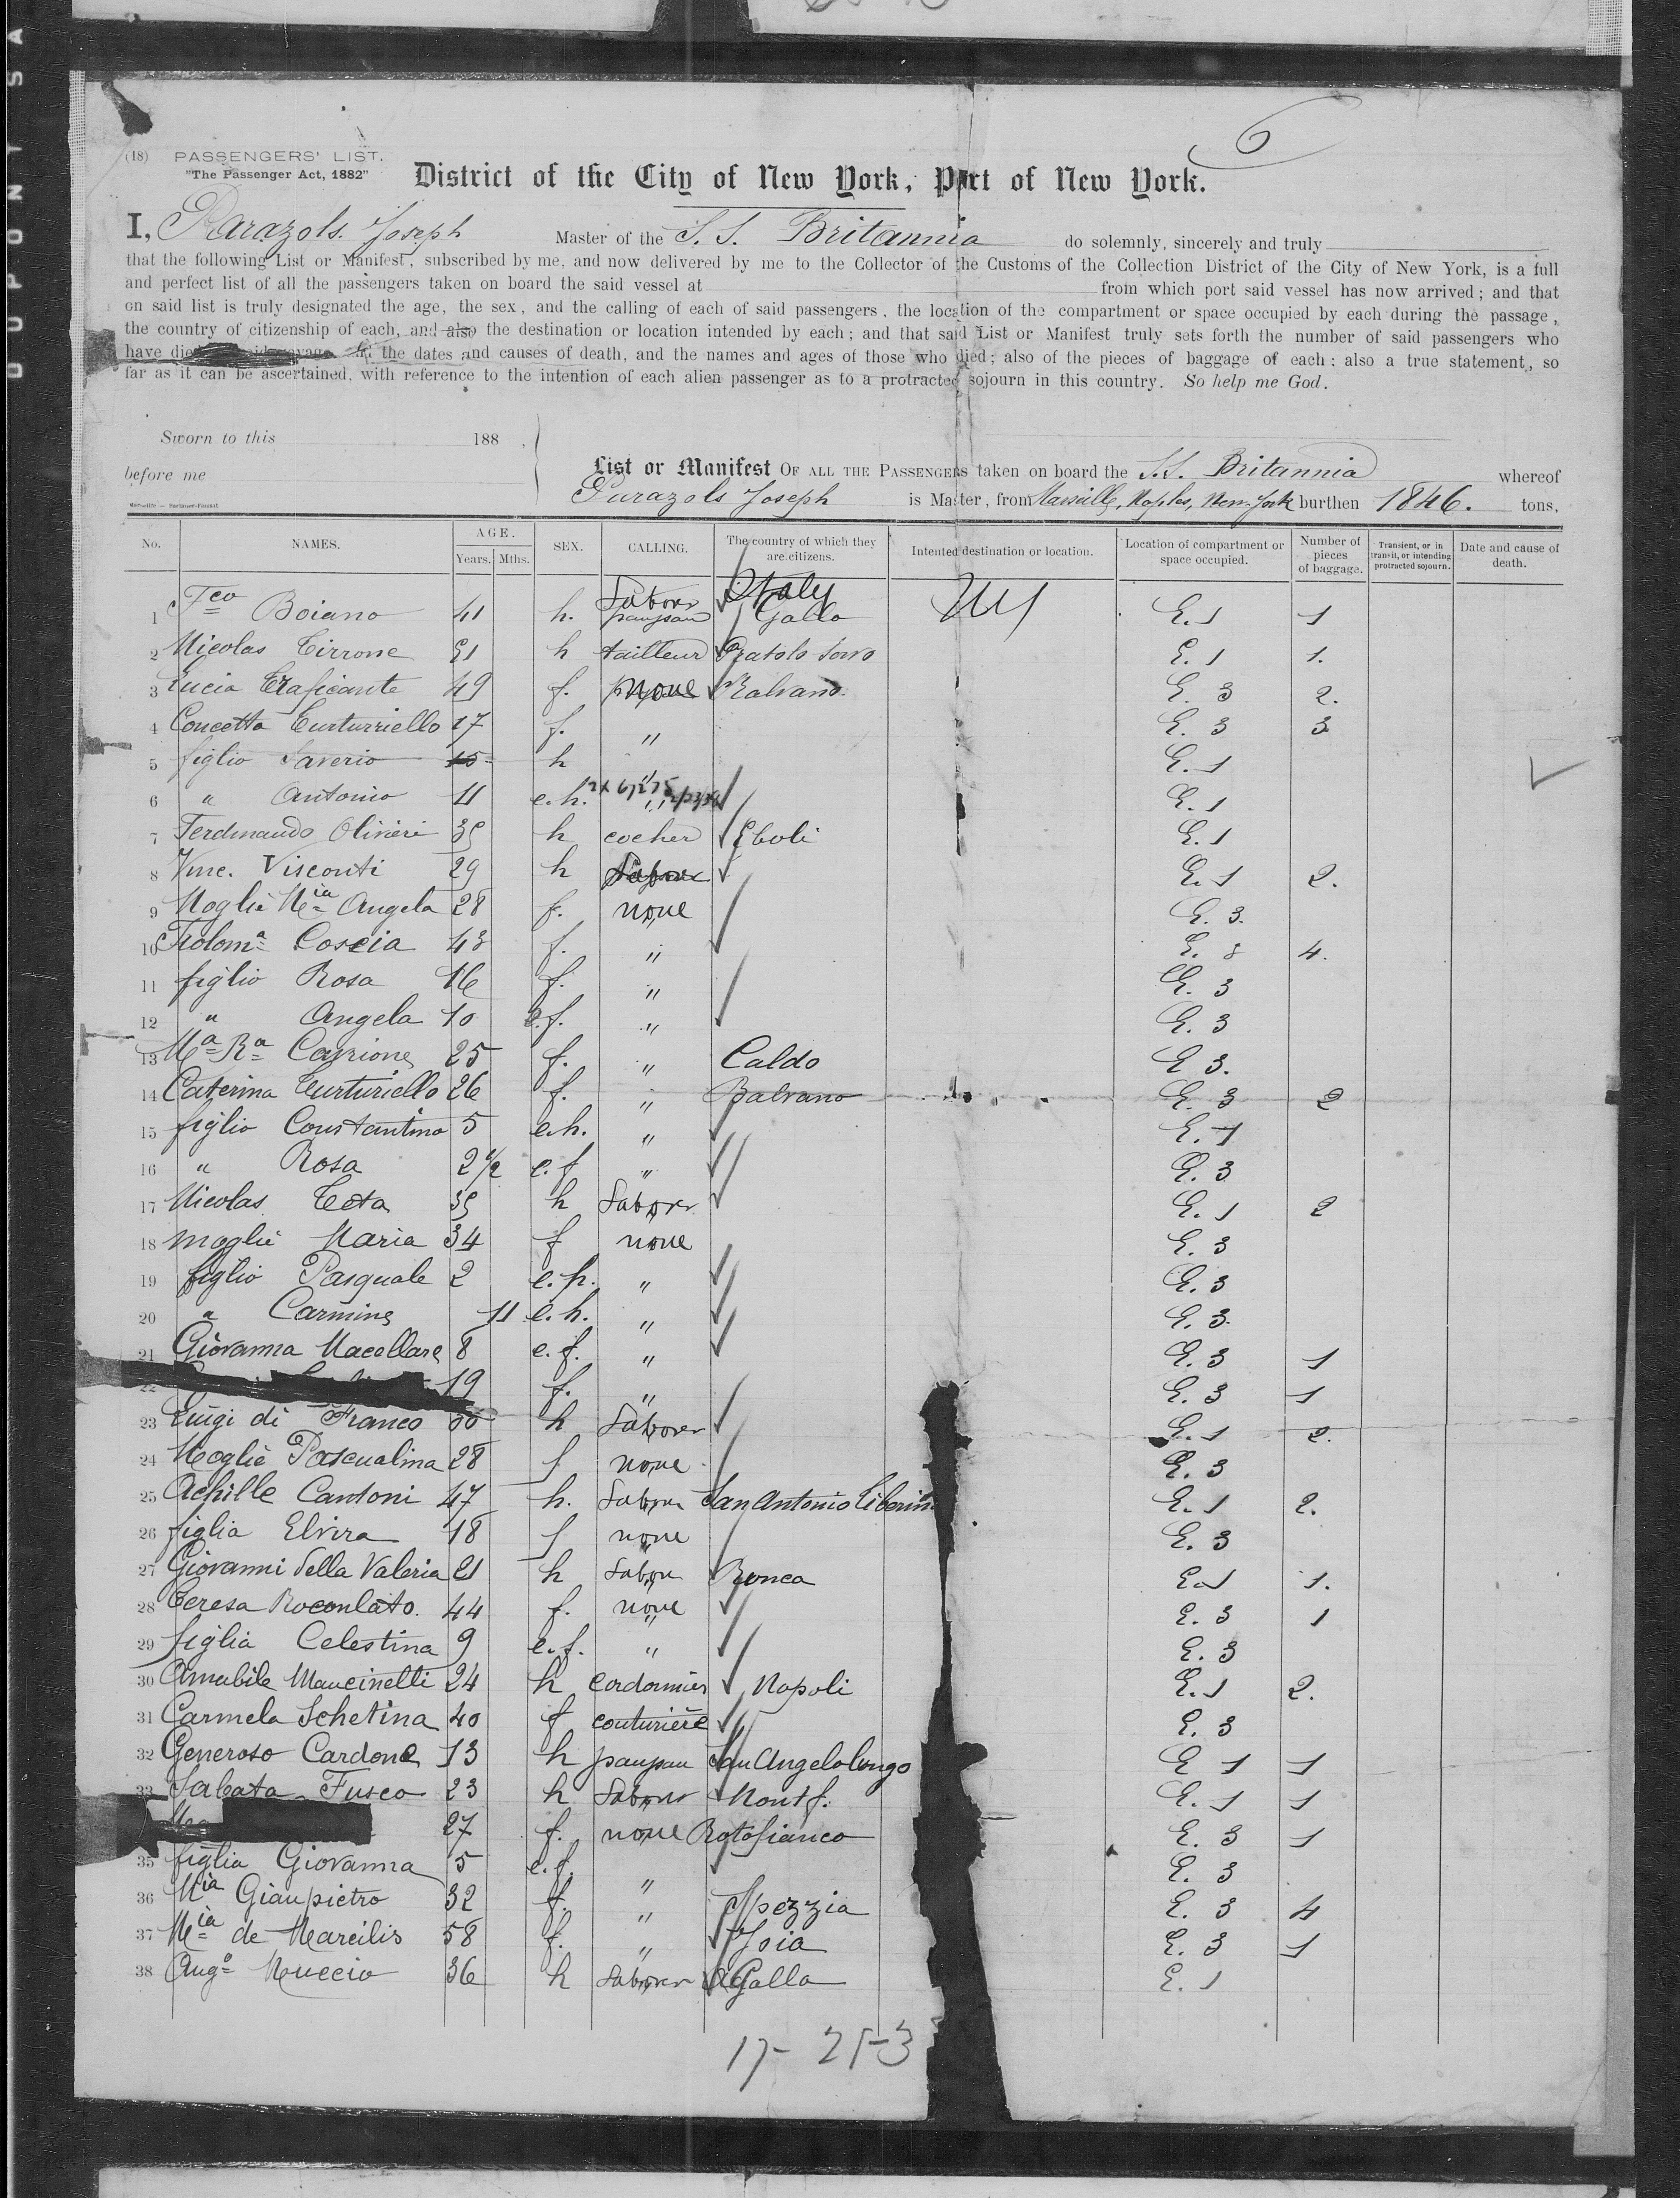 6
(18) PASSENGERS' LIST.
"The Passenger Act, 1882"
District of the City of New York, Port of New York.
I, Parazols. Joseph Master of the S. S. Britannia do solemnly, sincerely and truly
that the following List or Manifest, subscribed by me, and now delivered by me to the Collector of the Customs of the Collection District of the City of New York, is a full
and perfect list of all the passengers taken on board the said vessel at from which port said vessel has now arrived; and that
on said list is truly designated the age, the sex, and the calling of each of said passengers, the location of the compartment or space occupied by each during the passage,
the country of citizenship of each, and also the destination or location intended by each; and that said List or Manifest truly sets forth the number of said passengers who
have died the dates and causes of death, and the names and ages of those who died; also of the pieces of baggage of each: also a true statement, so
far as it can be ascertained, with reference to the intention of each alien passenger as to a protracted sojourn in this country. So help me God.
Sworn to this 188 ,
before me
List or Manifest OF ALL THE PASSENGERS taken on board the S.S. Britannia whereof
Parazols Joseph is Master, from Marseille, Naples, New-York burthen 1846. tons,
No. NAMES. AGE. Years. Mths. SEX. CALLING. The country of which they are citizens. Intented destination or location. Location of compartment or space occupied. Number of pieces of baggage. Transient, or in transit, or intending protracted sojourn. Date and cause of death.
Laborer Italy NY
1 Fco Boiano 41 h. paysan Gallo E. 1 1
2 Nicolas Cirrone 51 h tailleur E. 1 1.
3 Lucia Traficante 49 f. none Balvano. E. 3 2.
4 Concetta Turturriello 27 f. " E. 3 3
5 figlio Saverio 15 h " E. 1
6 " Antonio 11 e. h. " E. 1
7 Ferdinando Olivieri 35 h cocher Eboli E. 1
8 Vinc. Visconti 29 h Laborer E. 1 2.
9 Moglie Mia Angela 28 f. none E. 3.
10 Filoma Coscia 43 f. " E. 3 4.
11 figlio Rosa 16 f. " E. 3
12 " Angela 10 e. f. " E. 3
13 Ma Ra 25 f. " Caldo E 3.
14 Caterina Turturiello 26 f. " Balvano E. 3 2
15 figlio Constantino 5 e. h. " E. 1
16 " Rosa 2 1/2 e. f " E. 3
17 Nicolas Teta 35 h Laborer E. 1 2
18 moglie Maria 34 f none E. 3
19 figlio Pasquale 2 e. h. " E. 3
20 " Carmine 11 e. h. " E. 3.
21 Giovanna Macellare 8 e. f. " E. 3 1
22 19 f. " E. 3 1
23 Luigi di Franco 30 h Laborer E. 1 2.
24 Moglie Pascualina 28 f none E. 3
25 Achille Cantoni 47 h. Laborer San Antonio E. 1 2.
26 figlia Elvira 18 f none E. 3
27 Giovanni della Valeria 21 h Laborer Ronca E. 1 1.
28 Teresa Roconlato. 44 f. none E. 3 1
29 figlia Celestina 9 e. f. " E. 3
30 Amabile Mancinelli 24 h cordonnier Napoli E. 1 2.
31 Carmela Schetina 40 f couturière E. 3
32 Generoso Cardone 13 h paysan San Angelo lungo E 1 1
33 Sabata Fusco 23 h Laborer Montf. E. 1 1
27 f. none Rotofianco E. 3 1
35 figlia Giovanna 5 e. f. " E. 3
36 Mia Gianpietro 32 f. " Spezzia E. 3 4
37 Mia de Marcilis 58 f. " Joia E. 3 1
38 Ango Nuccio 36 h Laborer Galla E. 1
17- 21-3